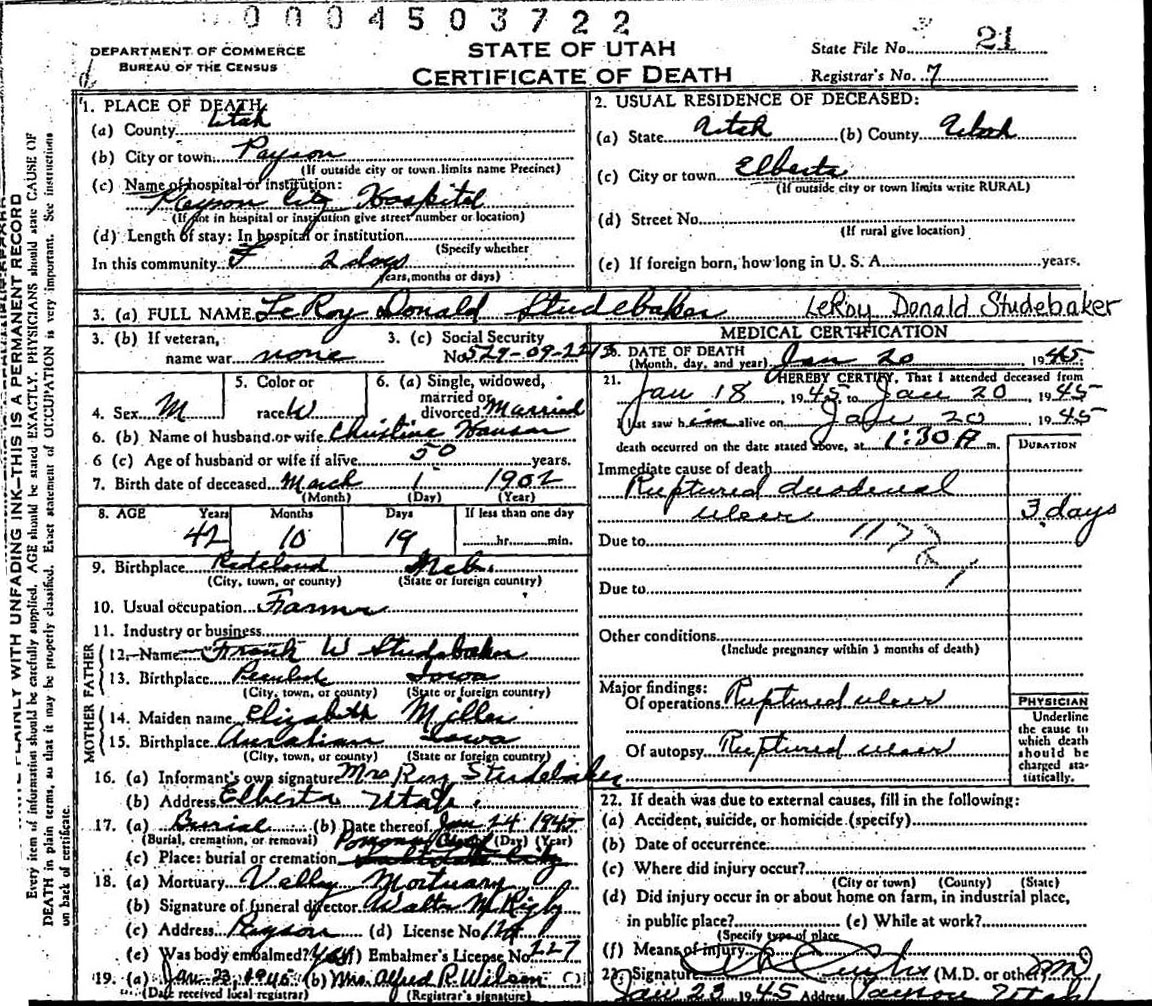 0004503722
DEPARTMENT OF COMMERCE
BUREAU OF THE CENSUS
STATE OF UTAH
CERTIFICATE OF DEATH
State File No. 21
Registrar's No. 7
Every item of information should be carefully supplied. AGE should be stated EXACTLY. PHYSICIANS should state CAUSE OF
DEATH in plain terms, so that it may be properly classified. Exact statement of OCCUPATION is very important. See instructions
on back of certificate.
PLAINLY WITH UNFADING INK—THIS IS A PERMANENT RECORD
1. PLACE OF DEATH:
(a) County Utah
(b) City or town Payson
(If outside city or town limits name Precinct)
(c) Name of hospital or institution:
Payson City Hospital
(If not in hospital or institution give street number or location)
(d) Length of stay: In hospital or institution
(Specify whether
In this community 2 days
years, months or days)
2. USUAL RESIDENCE OF DECEASED:
(a) State Utah (b) County Utah
(c) City or town Elberta
(If outside city or town limits write RURAL)
(d) Street No.
(If rural give location)
(e) If foreign born, how long in U. S. A. years.
3. (a) FULL NAME LeRoy Donald Studebaker LeRoy Donald Studebaker
3. (b) If veteran,
name war none
3. (c) Social Security
No.
4. Sex M
5. Color or
race W
6. (a) Single, widowed,
married or
divorced Married
6. (b) Name of husband or wife Christine Hansen
6 (c) Age of husband or wife if alive 50 years.
7. Birth date of deceased March 1 1902
(Month) (Day) (Year)
8. AGE Years Months Days If less than one day
42 10 19 hr. min.
9. Birthplace Redcloud Neb.
(City, town, or county) (State or foreign country)
10. Usual occupation Farmer
11. Industry or business
FATHER
12. Name Frank W Studebaker
13. Birthplace Iowa
(City, town, or county) (State or foreign country)
MOTHER
14. Maiden name Elizabeth Miller
15. Birthplace Iowa
(City, town, or county) (State or foreign country)
16. (a) Informant's own signature Mrs Roy Studebaker
(b) Address Elberta Utah.
17. (a) Burial (b) Date thereof Jan 24 1945
(Burial, cremation, or removal) (Day) (Year)
(c) Place: burial or cremation
18. (a) Mortuary Valley Mortuary
(b) Signature of funeral director Walter M Rigby
(c) Address Payson (d) License No.
(e) Was body embalmed? Yes (f) Embalmer's License No. 227
19. (a) Jan 23, 1945 (b) Mrs. Alfred R. Wilson
(Date received local registrar) (Registrar's signature)
MEDICAL CERTIFICATION
20. DATE OF DEATH
(Month, day, and year) Jan 20 1945
21. I HEREBY CERTIFY, That I attended deceased from
Jan 18, 1945, to Jan 20, 1945
I last saw him alive on Jan 20, 1945
death occurred on the date stated above, at 1:30 A m.
DURATION
Immediate cause of death
Ruptured duodenal
ulcer 3 days
Due to
Due to
Other conditions
(Include pregnancy within 3 months of death)
Major findings:
Of operations Ruptured ulcer
Of autopsy Ruptured ulcer
PHYSICIAN
Underline
the cause to
which death
should be
charged sta-
tistically.
22. If death was due to external causes, fill in the following:
(a) Accident, suicide, or homicide (specify)
(b) Date of occurrence
(c) Where did injury occur?
(City or town) (County) (State)
(d) Did injury occur in or about home on farm, in industrial place,
in public place? (e) While at work?
(Specify type of place
(f) Means of injury
23. Signature (M.D. or other)
Jan 23 1945 Address Payson Utah